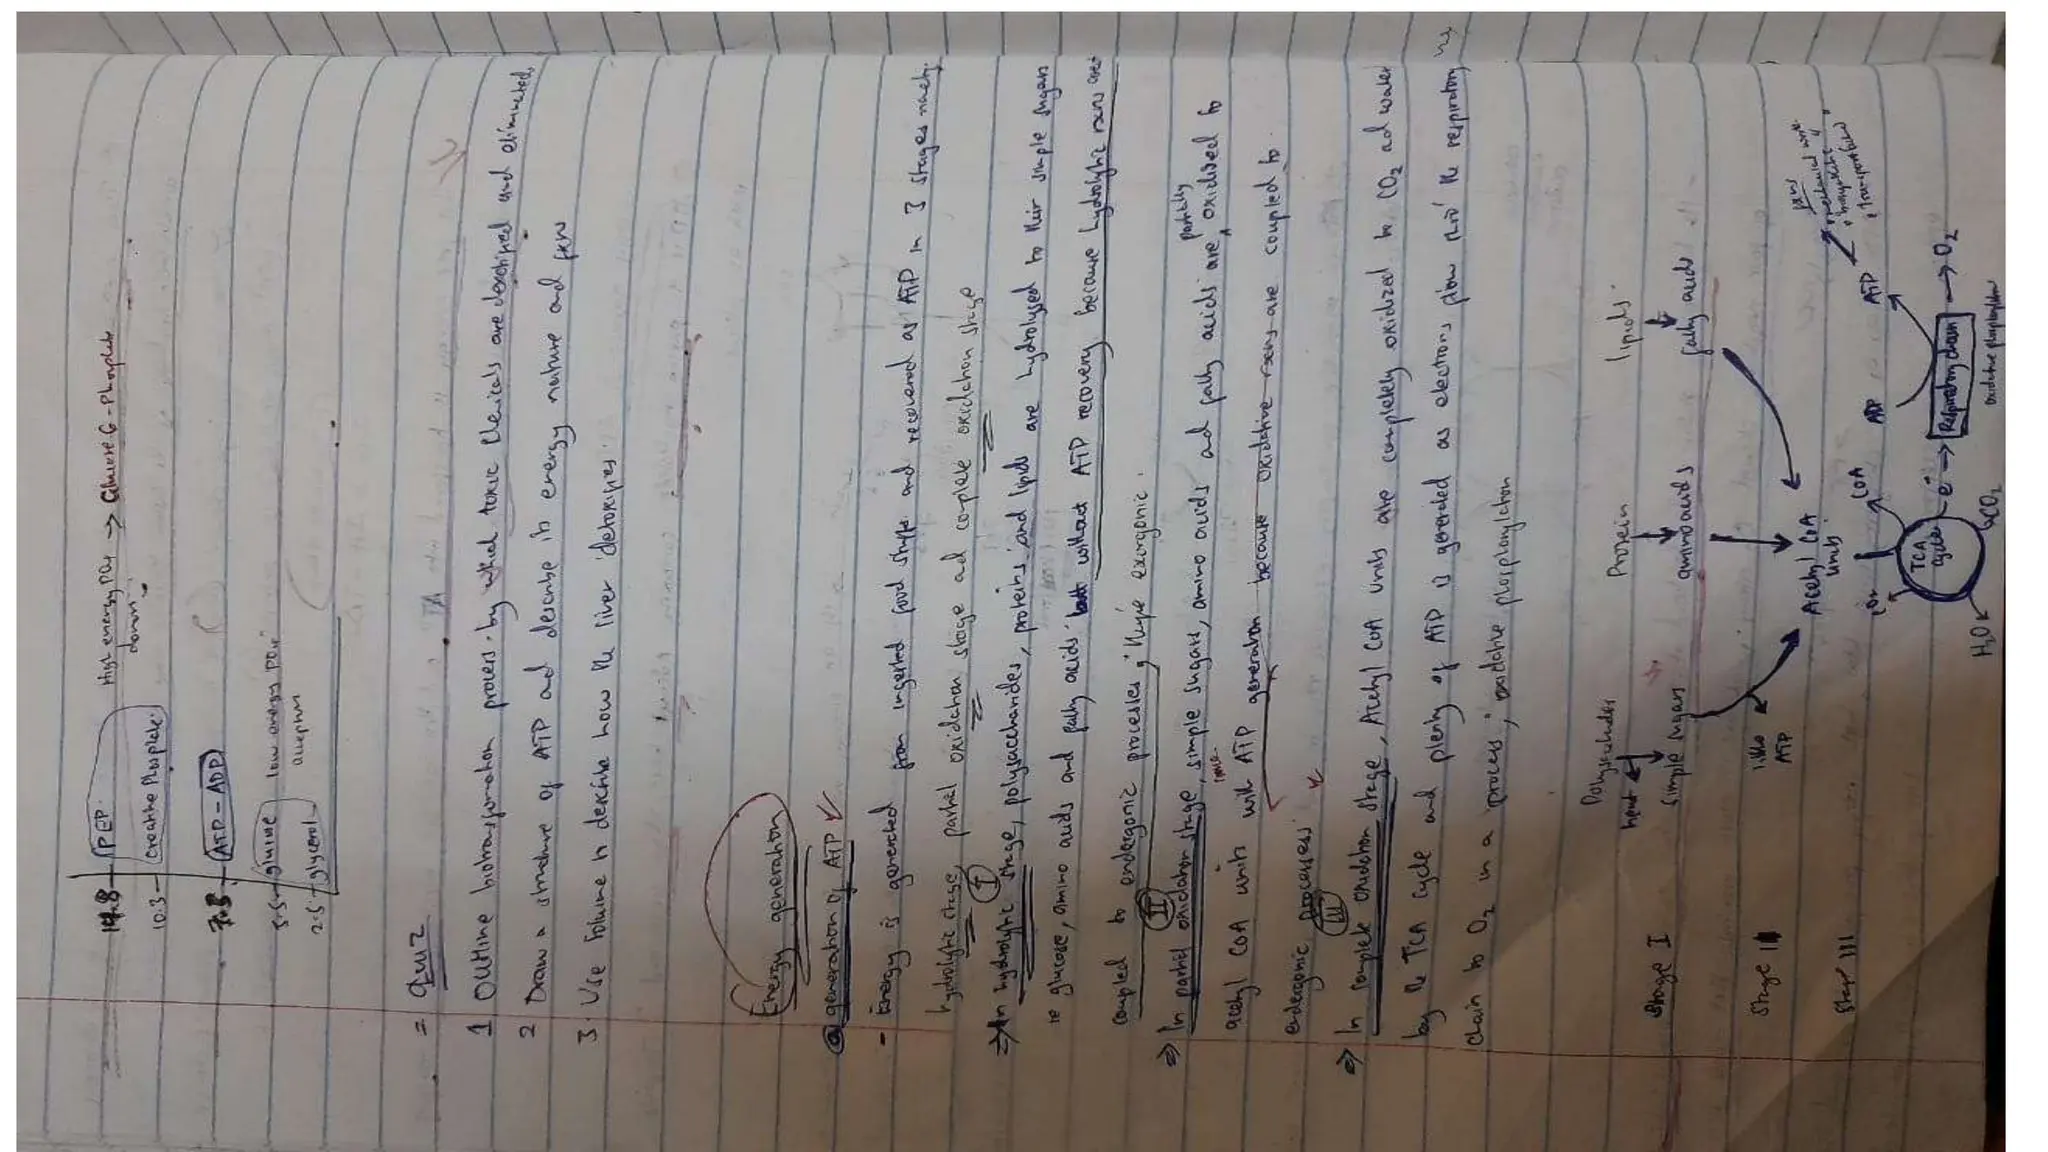 14.8 - PEP. High energy PO4 → Glucose 6-Phosphate
donor
10.3 - Creatine Phosphate.
7.3 - ATP - ADP
5.5 - low energy PO4
2.5 - glycerol
= Quiz
1 Outline biotransformation process by which toxic chemicals are detoxified and eliminated.
2 Draw a structure of ATP and describe its energy nature and
3. Use to describe how the liver detoxifies
Energy generation
@ generation of ATP
- Energy is generated from ingested food and recovered as ATP in 3 stages
hydrolytic stage, partial oxidation stage ad complete oxidation stage
I
⇒ In hydrolytic stage, polysaccharides, proteins and lipids are hydrolysed to their simple sugars
ie glucose, amino acids and fatty acids without ATP recovery because hydrolytic rxns are
coupled to endergonic processes, exergonic.
II
⇒ In partial oxidation stage, simple sugars, amino acids and fatty acids are partially oxidised to
acetyl CoA units with ATP generation because oxidative rxns are coupled to
endergonic processes
III
⇒ In complete oxidation stage, Acetyl CoA units are completely oxidized to CO2 ad water
by the TCA cycle and plenty of ATP is generated as electrons flow the respiratory
chain to O2 in a process, oxidative phosphorylation
Polysaccharides Protein lipids.
Stage I heat
simple sugars amino acids fatty acids
Stage II little
ATP
Acetyl CoA
units
mechanical work
Stage III CoA ADP ATP
TCA
cycle e- → Respiratory chain → O2
H2O CO2 oxidative phosphorylation